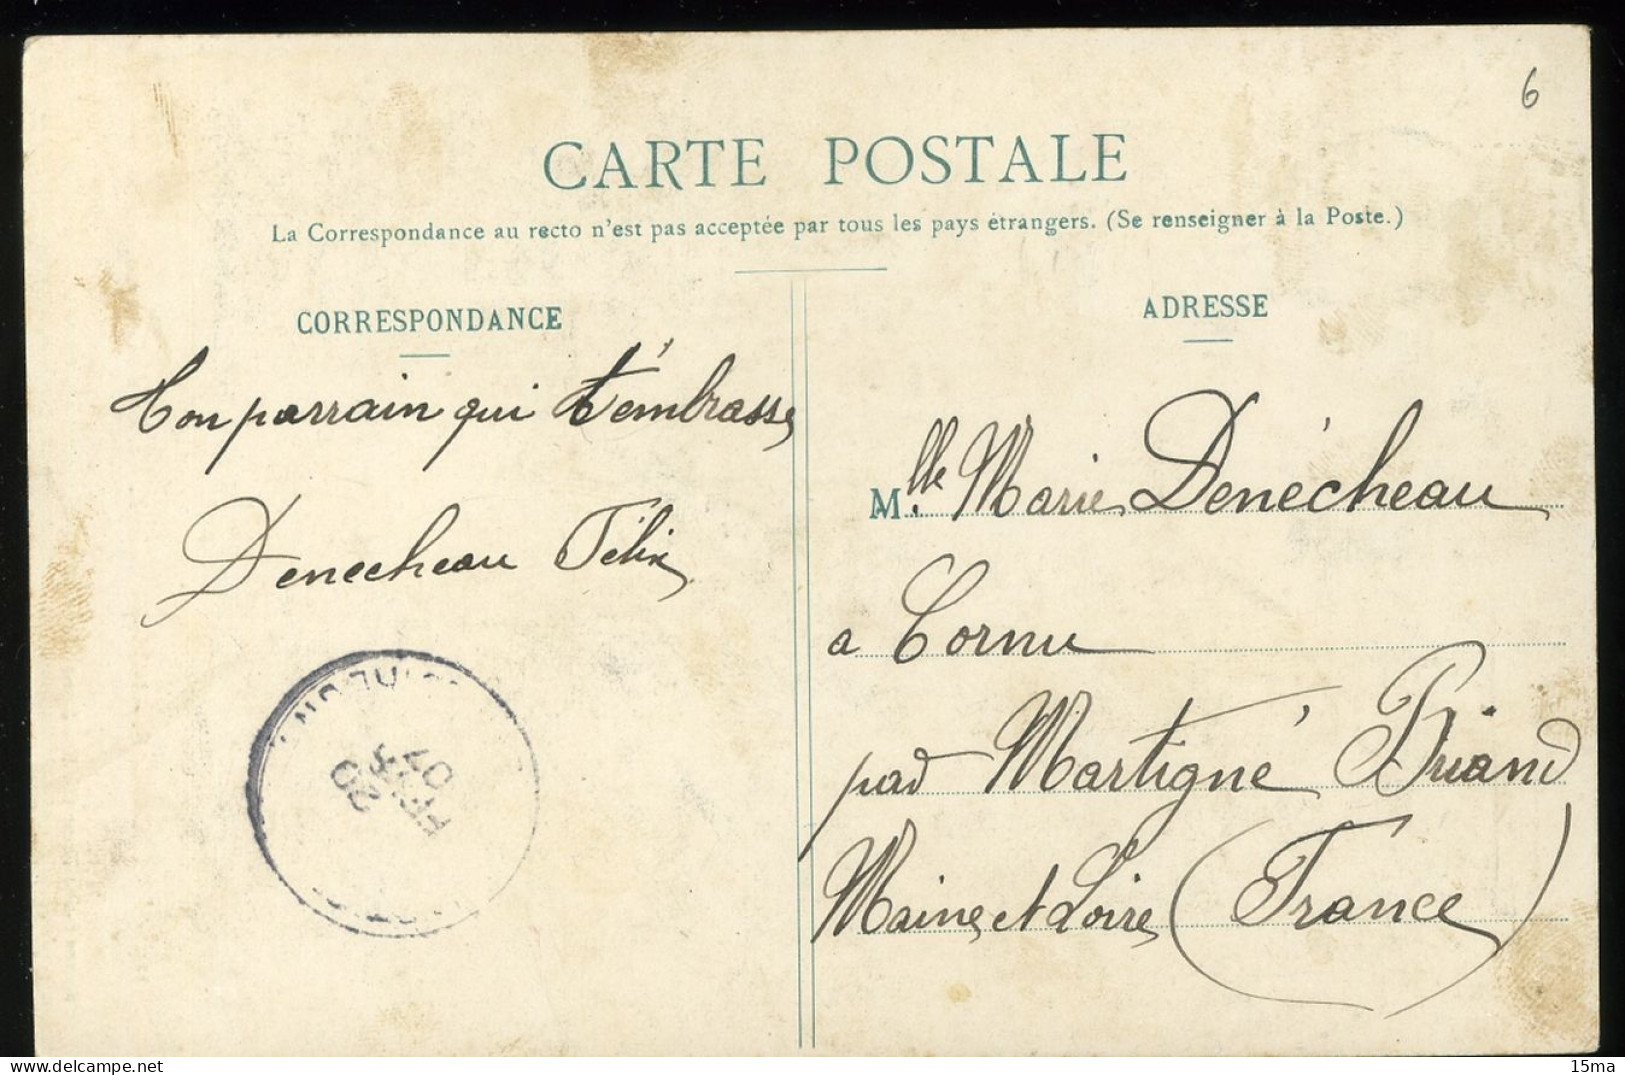 6
CARTE POSTALE
La Correspondance au recto n'est pas acceptée par tous les pays étrangers. (Se renseigner à la Poste.)
CORRESPONDANCE
Ton parrain qui t'embrasse
Denecheau Félix
20
FEVR
07
ADRESSE
Mlle. Marie Denécheau
a Cornu
par Martigné Briand
Maine et Loire (France)
15ma